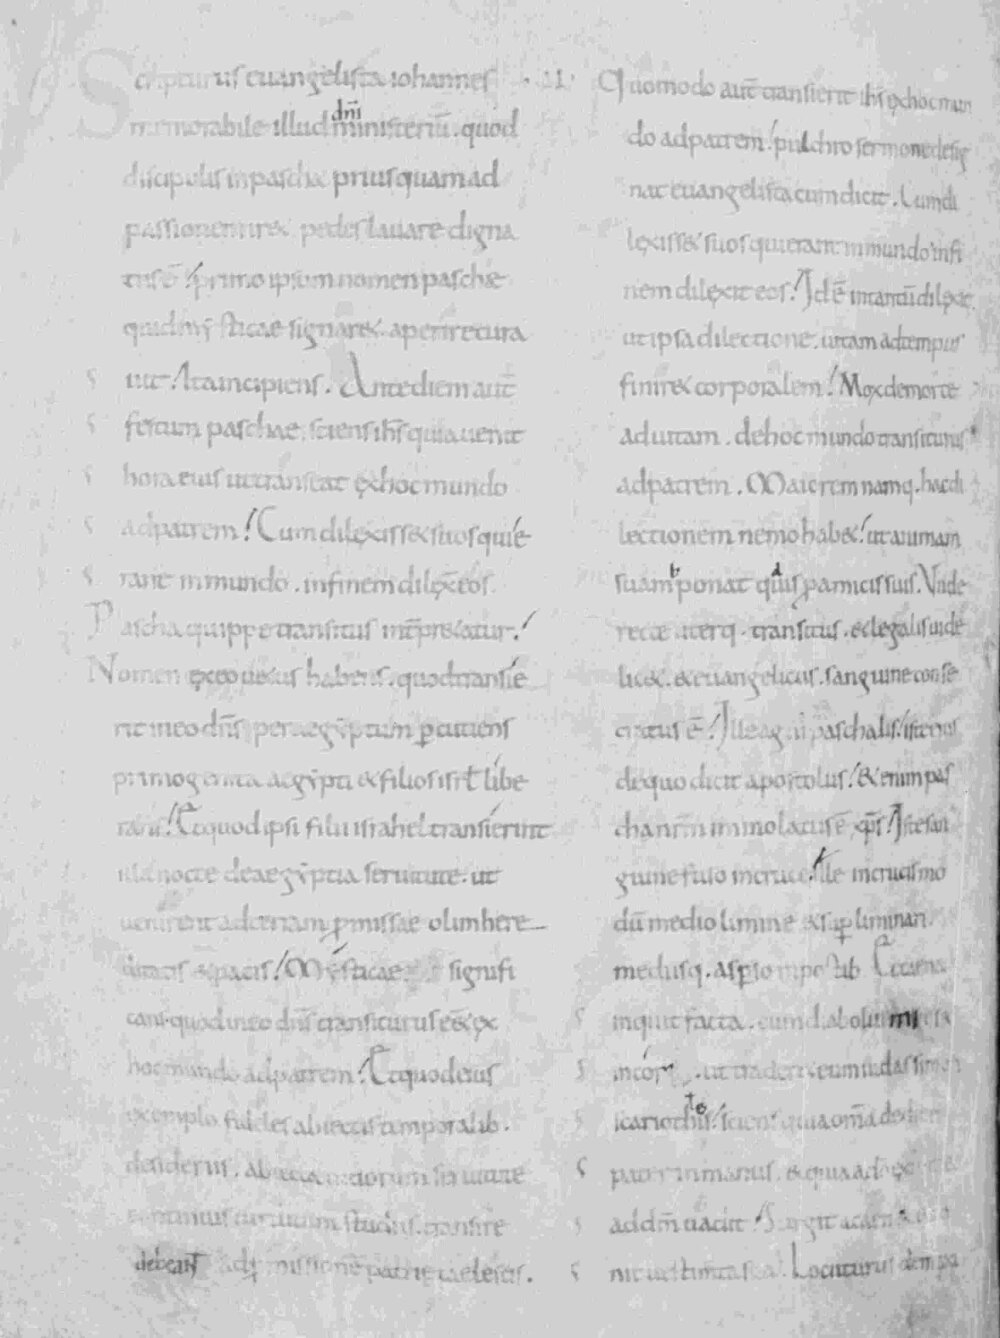 Scripturus euangelista iohannes
memorabile illud dn̄i ministeriū. quod
discipulis in pascha priusquam ad
passionem iret pedes lauare digna
tus ē, primo ipsum nomen paschae
quid mysticae signaret. aperire cura
uit. Ita incipiens. Ante diem aut̄
festum paschae, sciens ih̄s quia uenit
hora eius ut transeat ex hoc mundo
ad patrem. Cum dilexisset suos qui e
rant in mundo. in finem dilex̄ eos.
Pascha quippe transitus int̄pretatur.
Nomen ex eo uetus habens. quod transie
rit in eo dn̄s per aegyptum percutiens
primogenita aegypti et filios isrl̄ libe
rans. Et quod ipsi filii israhel transierint
illa nocte de aegyptia seruitute. ut
uenirent ad terram p̱missae olim here
ditatis et pacis. Mysticae signifi
cans. quod in eo dn̄s transiturus esset ex
hoc mundo ad patrem. Et quod eius
exemplo fideles abiectis temporalib.
desideriis. abiecta uitiorum seruitute
continuis uirtutum studiis. transire
debeant ad p̱missionē patriae caelestis.
.II. Quomodo aut̄ transierit ih̄s ex hoc mun
do ad patrem. pulchro sermone desig
nat euangelista cum dicit. Cum di
lexisset suos qui erant in mundo. in fi
nem dilexit eos. Id ē in tantū dilexit
ut ipsa dilectione. uitam ad tempus
finiret corporalem. Mox de morte
ad uitam. de hoc mundo transiturus
ad patrem. Maiorem namq. hac di
lectionem nemo habet. ut animam
suam ponat quis p̱ amicis suis. Vnde
recte uterq. transitus. et legalis uide
licet. et euangelicus. sanguine conse
cratus ē. Ille agni paschalis. iste eius
de quo dicit apostolus. Et enim pas
cha nr̄m immolatus ē xp̄s. Iste san
guine fuso in cruce. Ille in crucis mo
dū medio limine et sup̱liminari.
mediusq. asp̱so in postib. Et cena
inquit facta. cum diabolus iam misisset
in cor. ut traderet eum iudas simonis
scariothis. sciens quia om̄a dedit ei
pater in manus. et quia a dō exiit et
ad dm̄ uadit. Surgit a cena et po
nit uestimenta sua. Locuturus